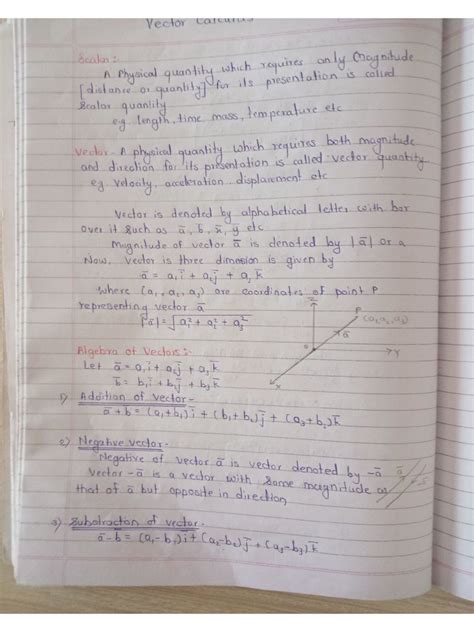 Vector Calculus
Scalar :-
A Physical quantity which requires only Magnitude
[distance or quantity] for its presentation is called
Scalar quantity
e.g. length, time mass, temperature etc
Vector - A physical quantity which requires both magnitude
and direction for its presentation is called vector quantity
eg. velocity, acceleration displacement etc
Vector is denoted by alphabetical letter with bar
over it such as a̅, b̅, x̅, y̅ etc
Magnitude of vector a̅ is denoted by |a̅| or a
Now, Vector is three dimension is given by
a̅ = a₁i̅ + a₂j̅ + a₃k̅
where (a₁, a₂, a₃) are coordinates of point P
representing vector a̅
|a̅| = √a₁² + a₂² + a₃²
Z
P
(a₁a₂,a₃)
a̅
o
Y
X
Algebra of Vectors :-
Let a̅ = a₁i̅ + a₂j̅ + a₃k̅
b̅ = b₁i̅ + b₂j̅ + b₃k̅
1) Addition of vector -
a̅ + b̅ = (a₁+b₁)i̅ + (b₁+b₂)j̅ + (a₃+b₃)k̅
2) Negative vector -
Negative of vector a̅ is vector denoted by -a̅
vector -a̅ is a vector with same magnitude as
that of a̅ but opposite in direction
a̅
-a̅
3) Substraction of vector -
a̅ - b̅ = (a₁-b₁)i̅ + (a₂-b₂)j̅ + (a₃-b₃)k̅